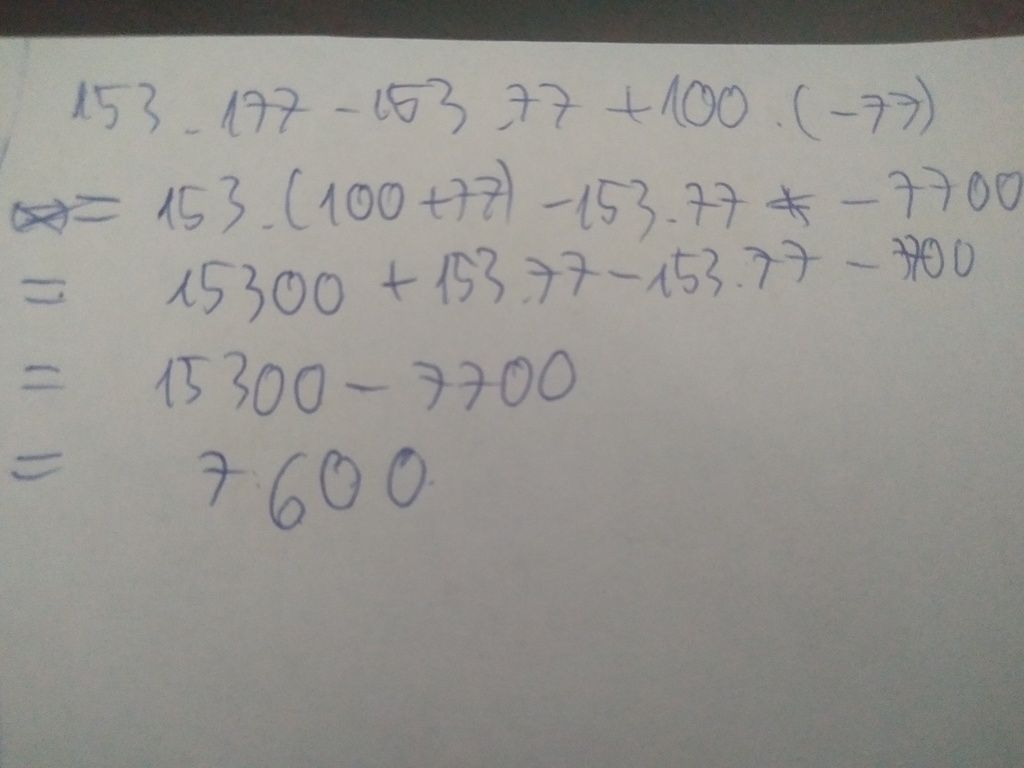 153 . 177 - 153 . 77 + 100 . (-77)
= 153 . (100 + 77) - 153 . 77 - 7700
= 15300 + 153 . 77 - 153 . 77 - 7700
= 15300 - 7700
= 7600